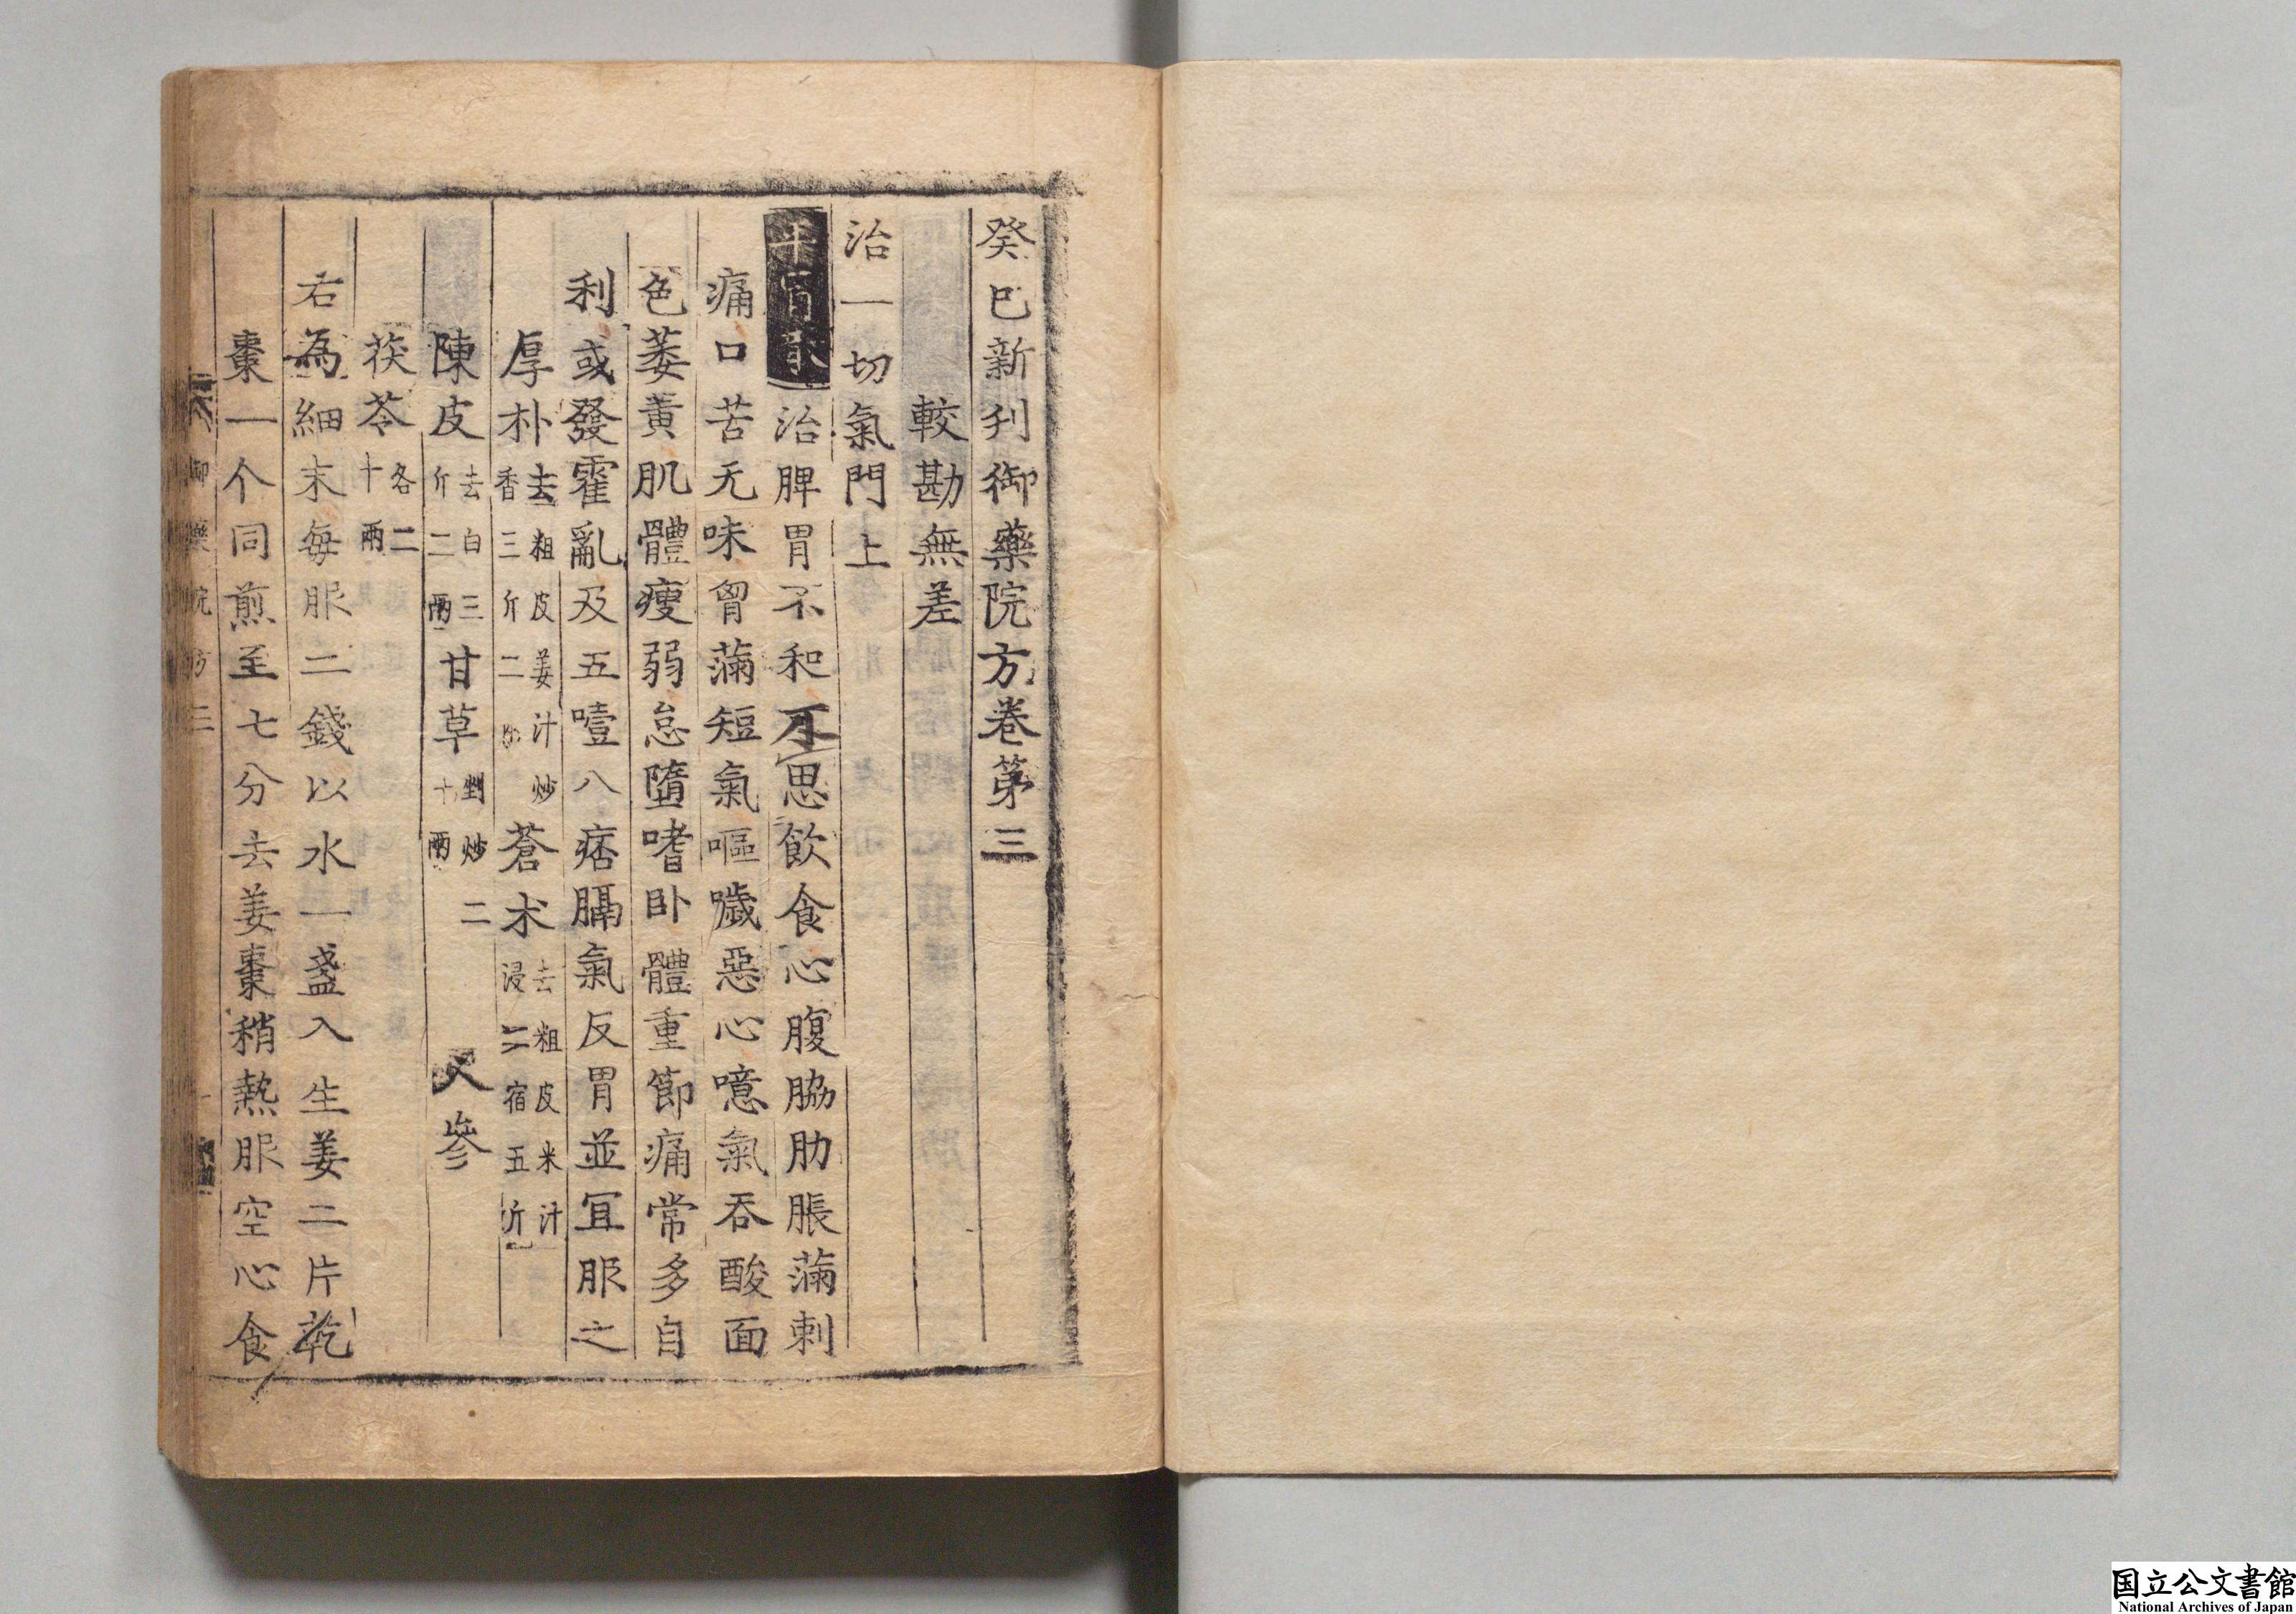 癸巳新刋御藥院方卷第三
較勘無差
治一切氣門上
平胃散治脾胃不和不思飲食心腹脇肋脹滿刺
痛口苦无味胷滿短氣嘔噦惡心噫氣吞酸面
色萎黃肌體瘦弱怠墮嗜卧體重節痛常多自
利或發霍亂及五噎八痞膈氣反胃並冝服之
厚朴去粗皮姜汁炒香三斤二 蒼朮去粗皮米汁浸二宿五斤
陳皮去白三斤二兩 甘草剉炒二十兩 人參
茯苓各二十兩
右為細末每服二錢以水一盞入生姜二片乾
棗一个同煎至七分去姜棗稍熱服空心食
御藥院方三
国立公文書館
National Archives of Japan